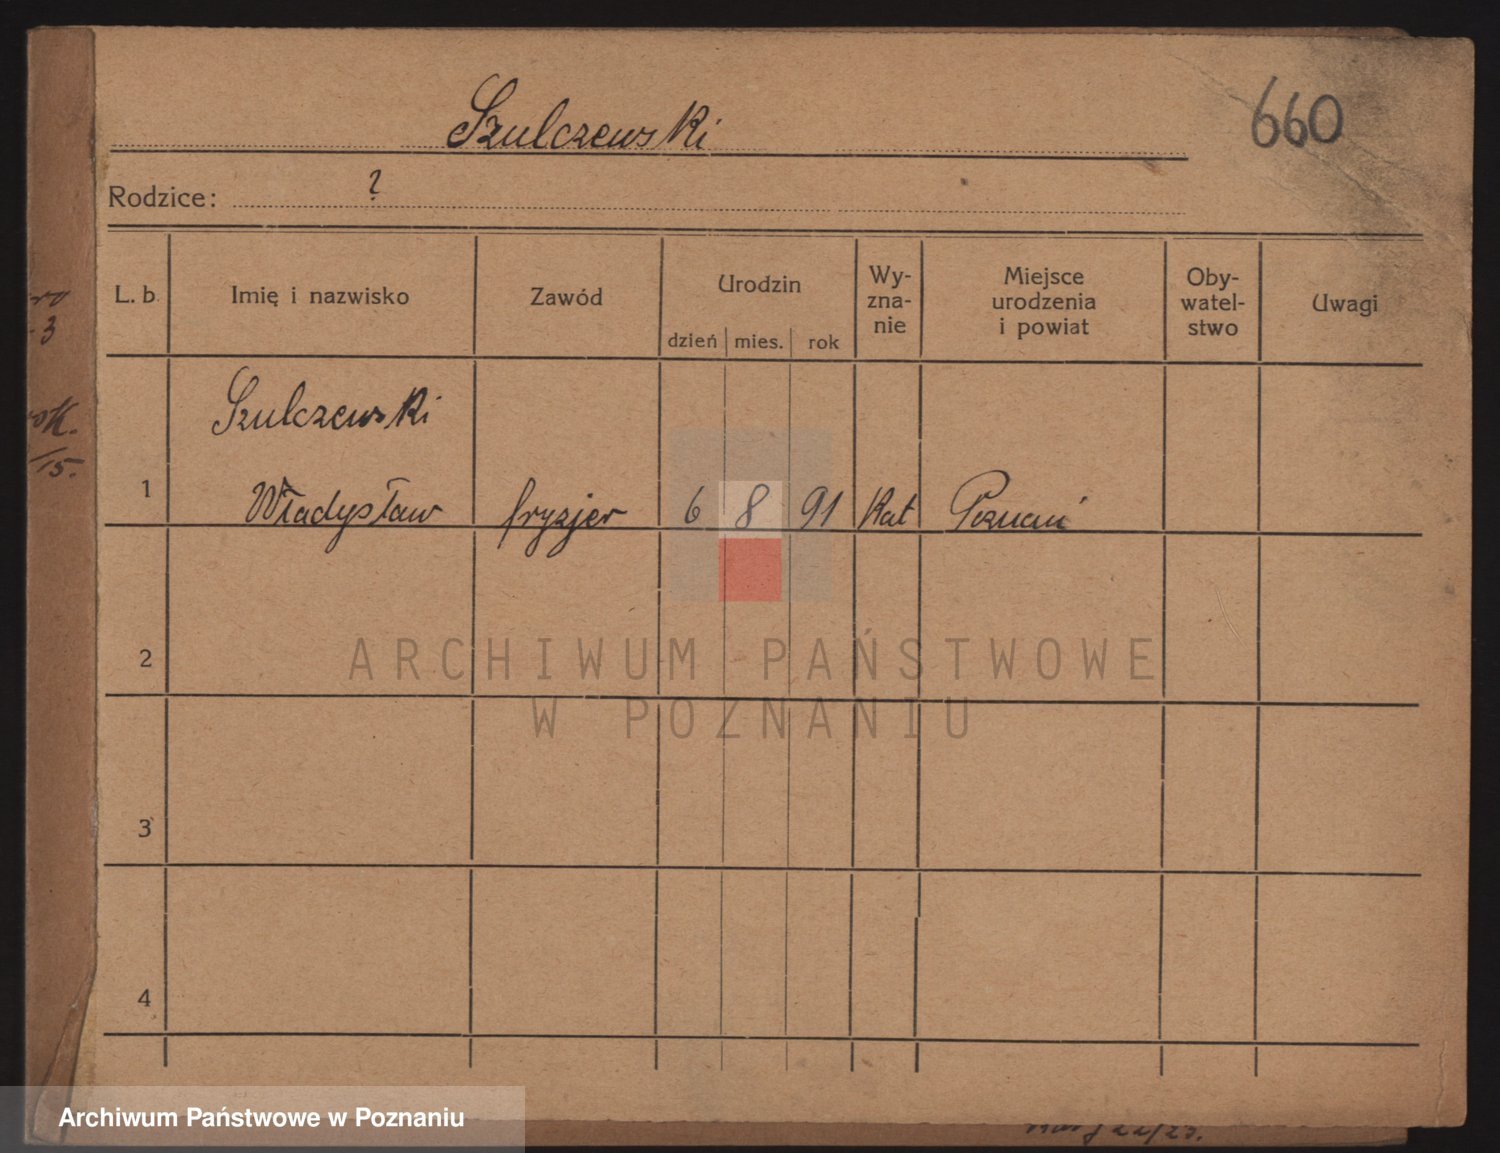 Szulczewski
660
Rodzice: ?
L. b. Imię i nazwisko Zawód Urodzin dzień mies. rok Wy-zna-nie Miejsce urodzenia i powiat Oby-watel-stwo Uwagi
Szulczewski
1 Władysław fryzjer 6 8 91 Kat Poznań
2
ARCHIWUM PAŃSTWOWE
W POZNANIU
3
4
Archiwum Państwowe w Poznaniu
3
15.